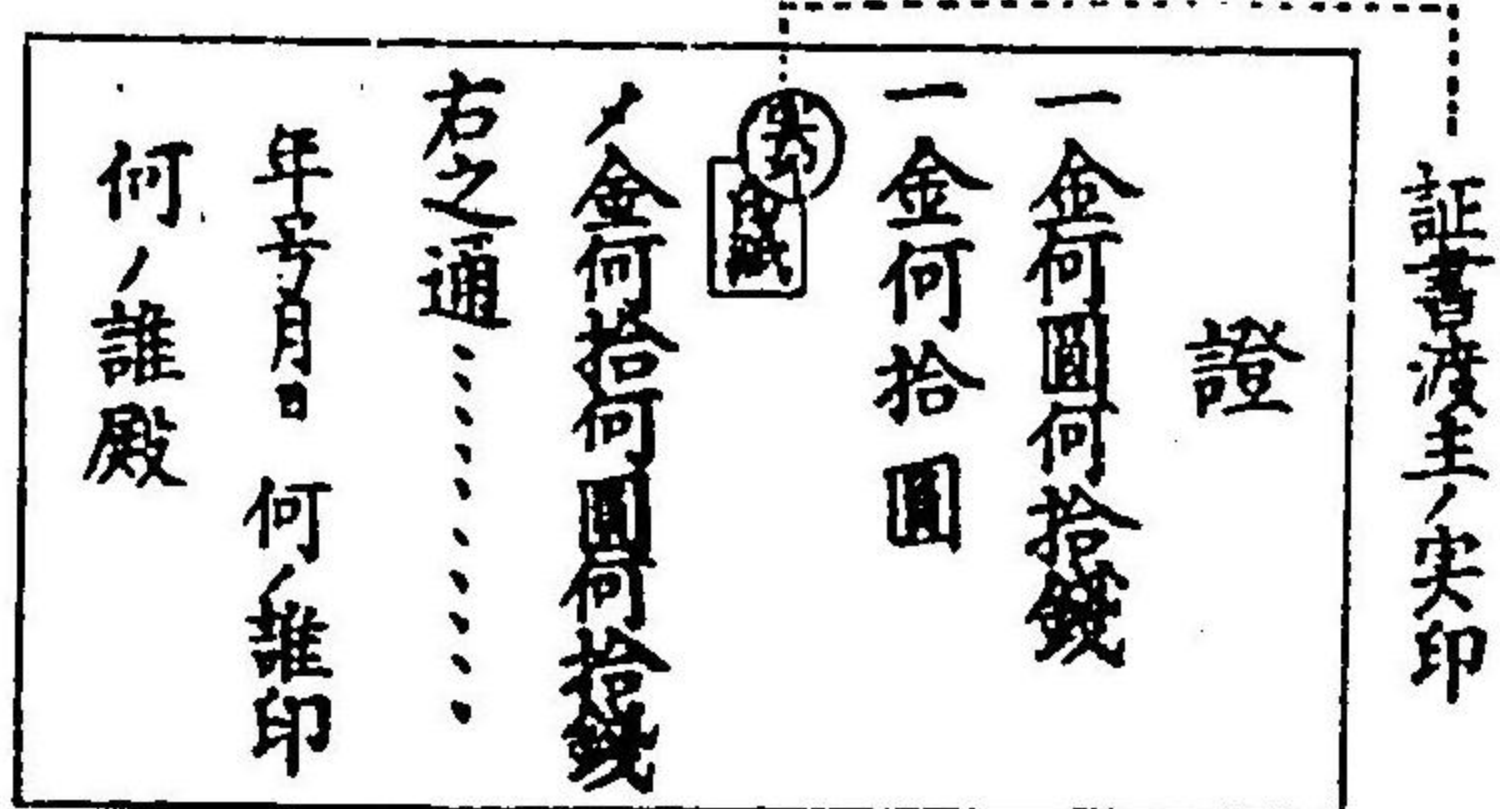 証書渡主ノ実印
證
一金何圓何拾錢
一金何拾圓
実印
印紙
〆金何拾何圓何拾錢
右之通…………
年号月日 何ノ誰印
何ノ誰殿